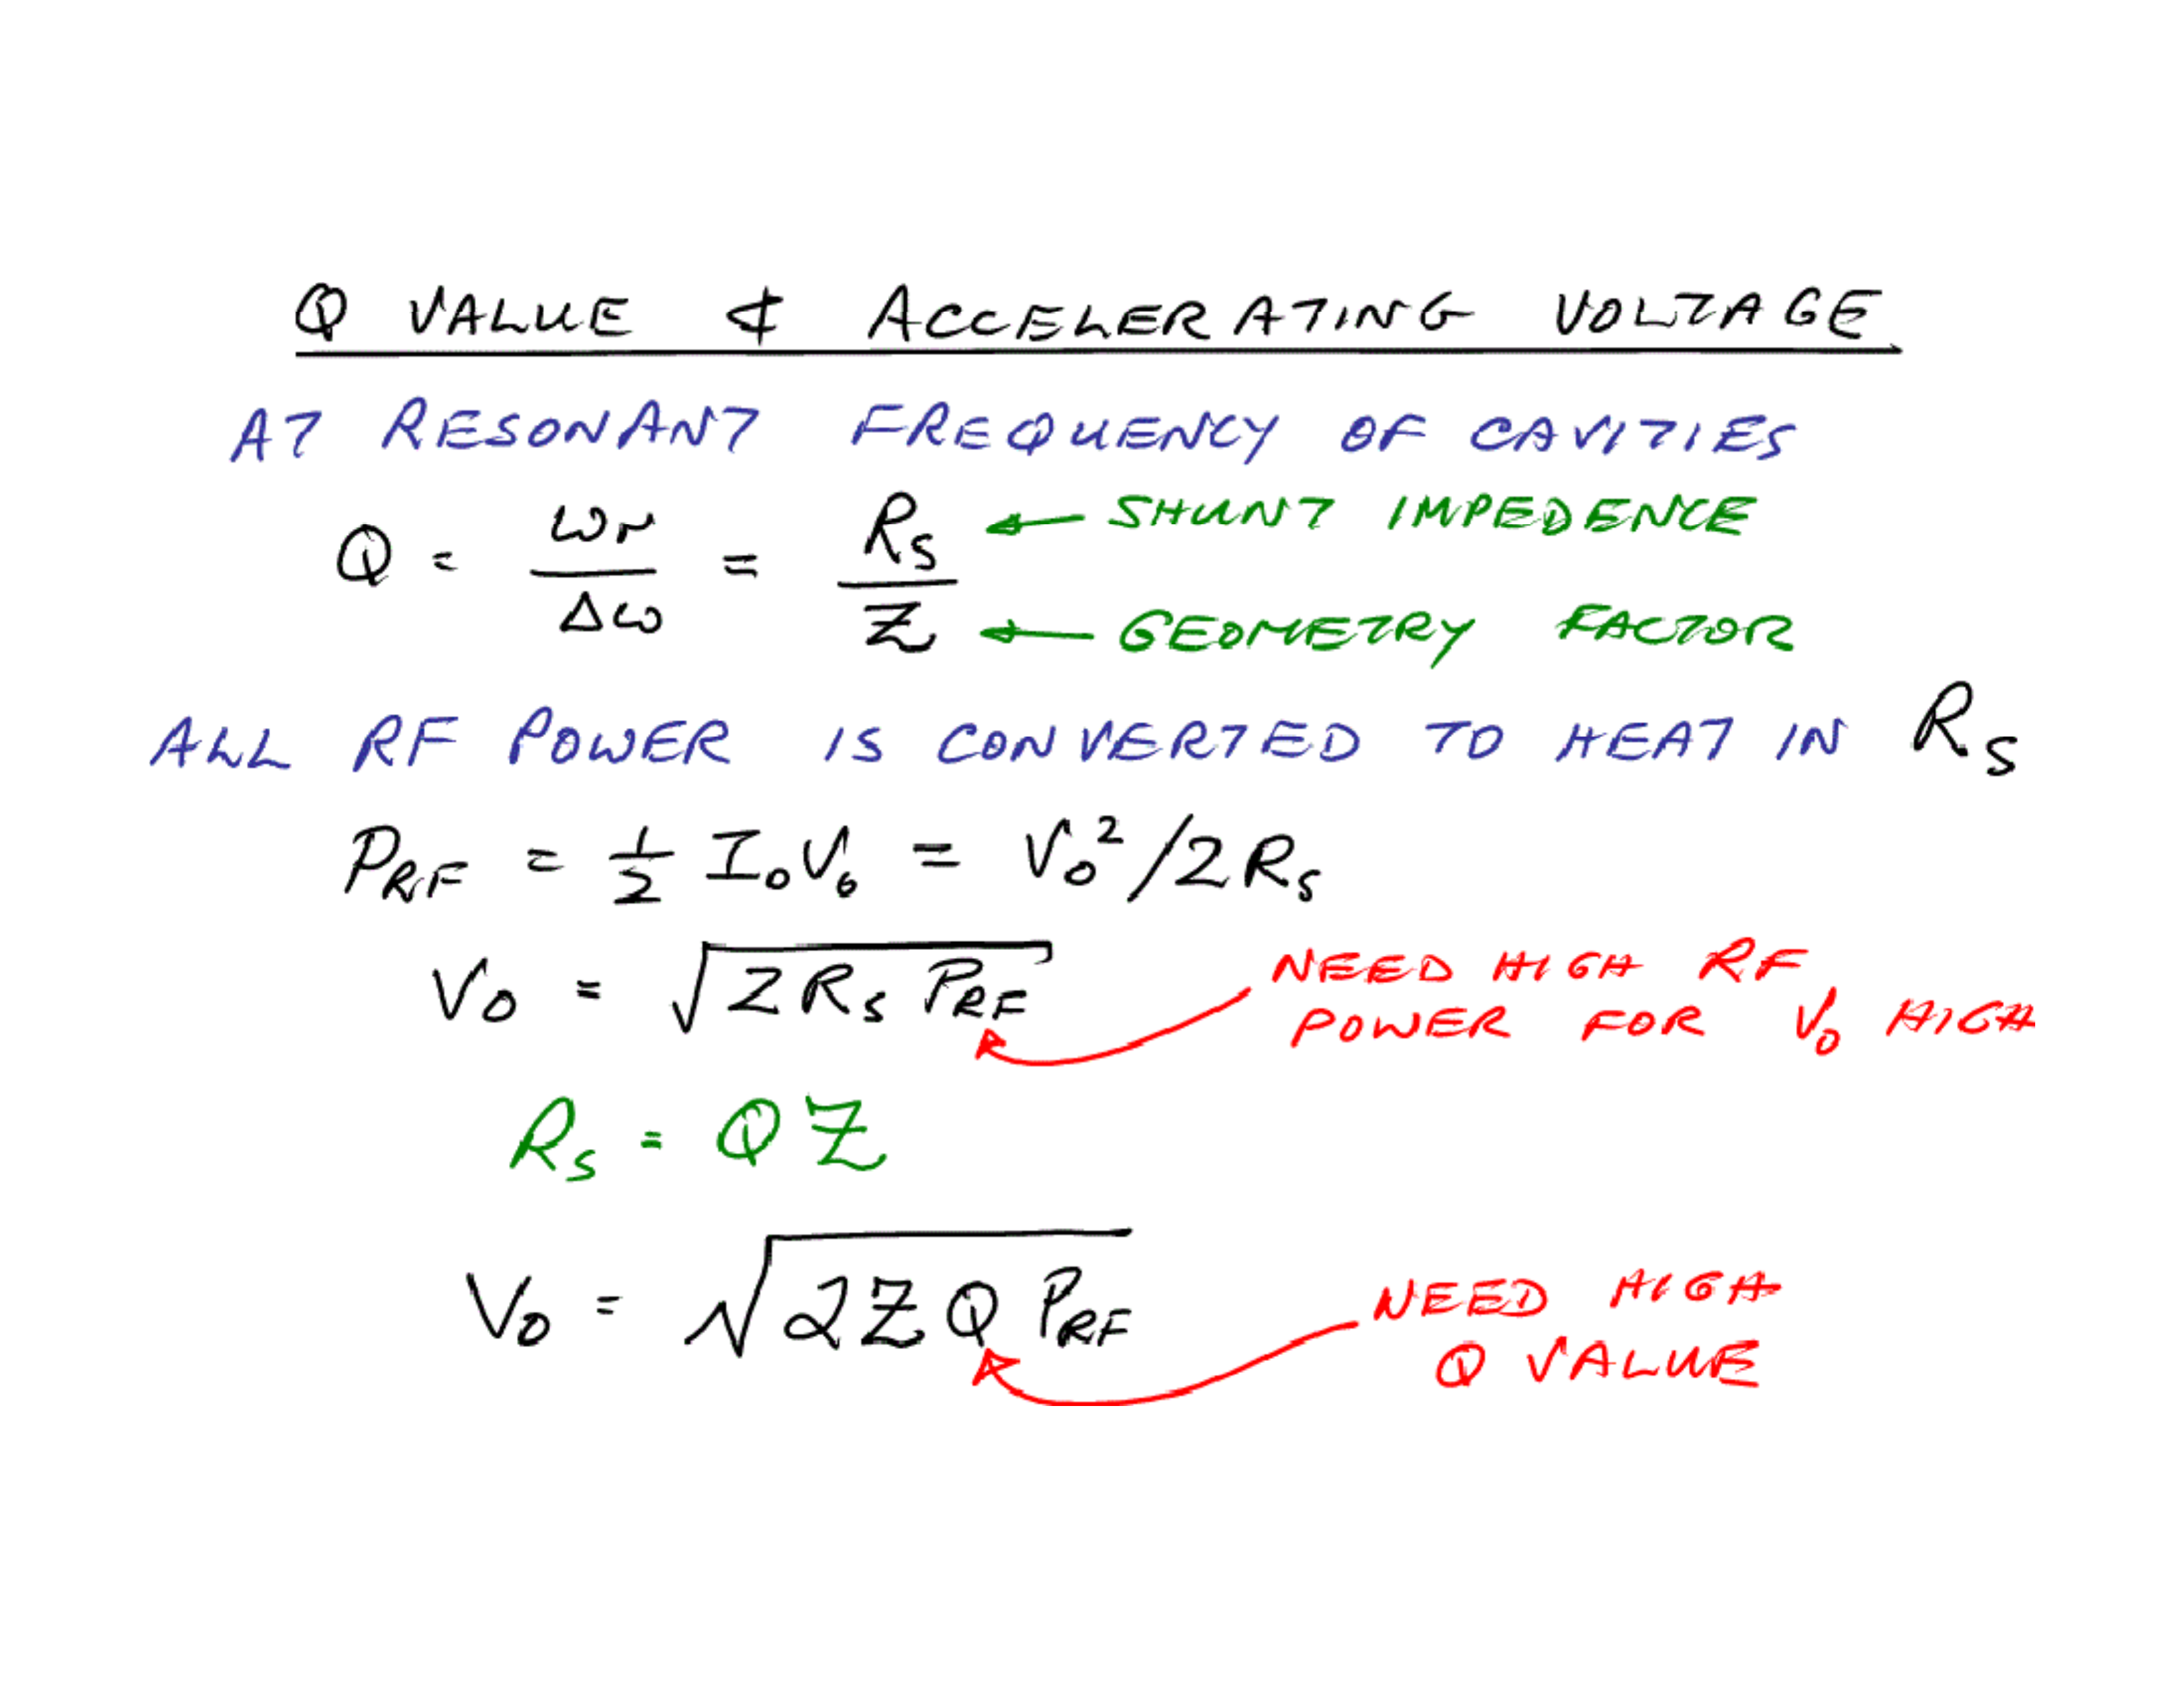 Q VALUE & ACCELERATING VOLTAGE
AT RESONANT FREQUENCY OF CAVITIES
Q = ωr/Δω = Rs/Z ← SHUNT IMPEDENCE
← GEOMETRY FACTOR
ALL RF POWER IS CONVERTED TO HEAT IN Rs
PRF = 1/2 I0 V0 = V0²/2Rs
V0 = √(2 Rs PRF) NEED HIGH RF
POWER FOR V0 HIGH
Rs = QZ
V0 = √(2 Z Q PRF) NEED HIGH
Q VALUE